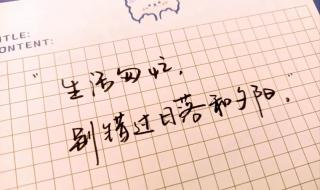 TITLE:
CONTENT:
“生活匆忙,
别错过日落和夕阳。”